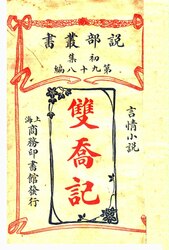 說部叢書
初集
第九十八編
言情小說
雙喬記
上海商務印書館發行